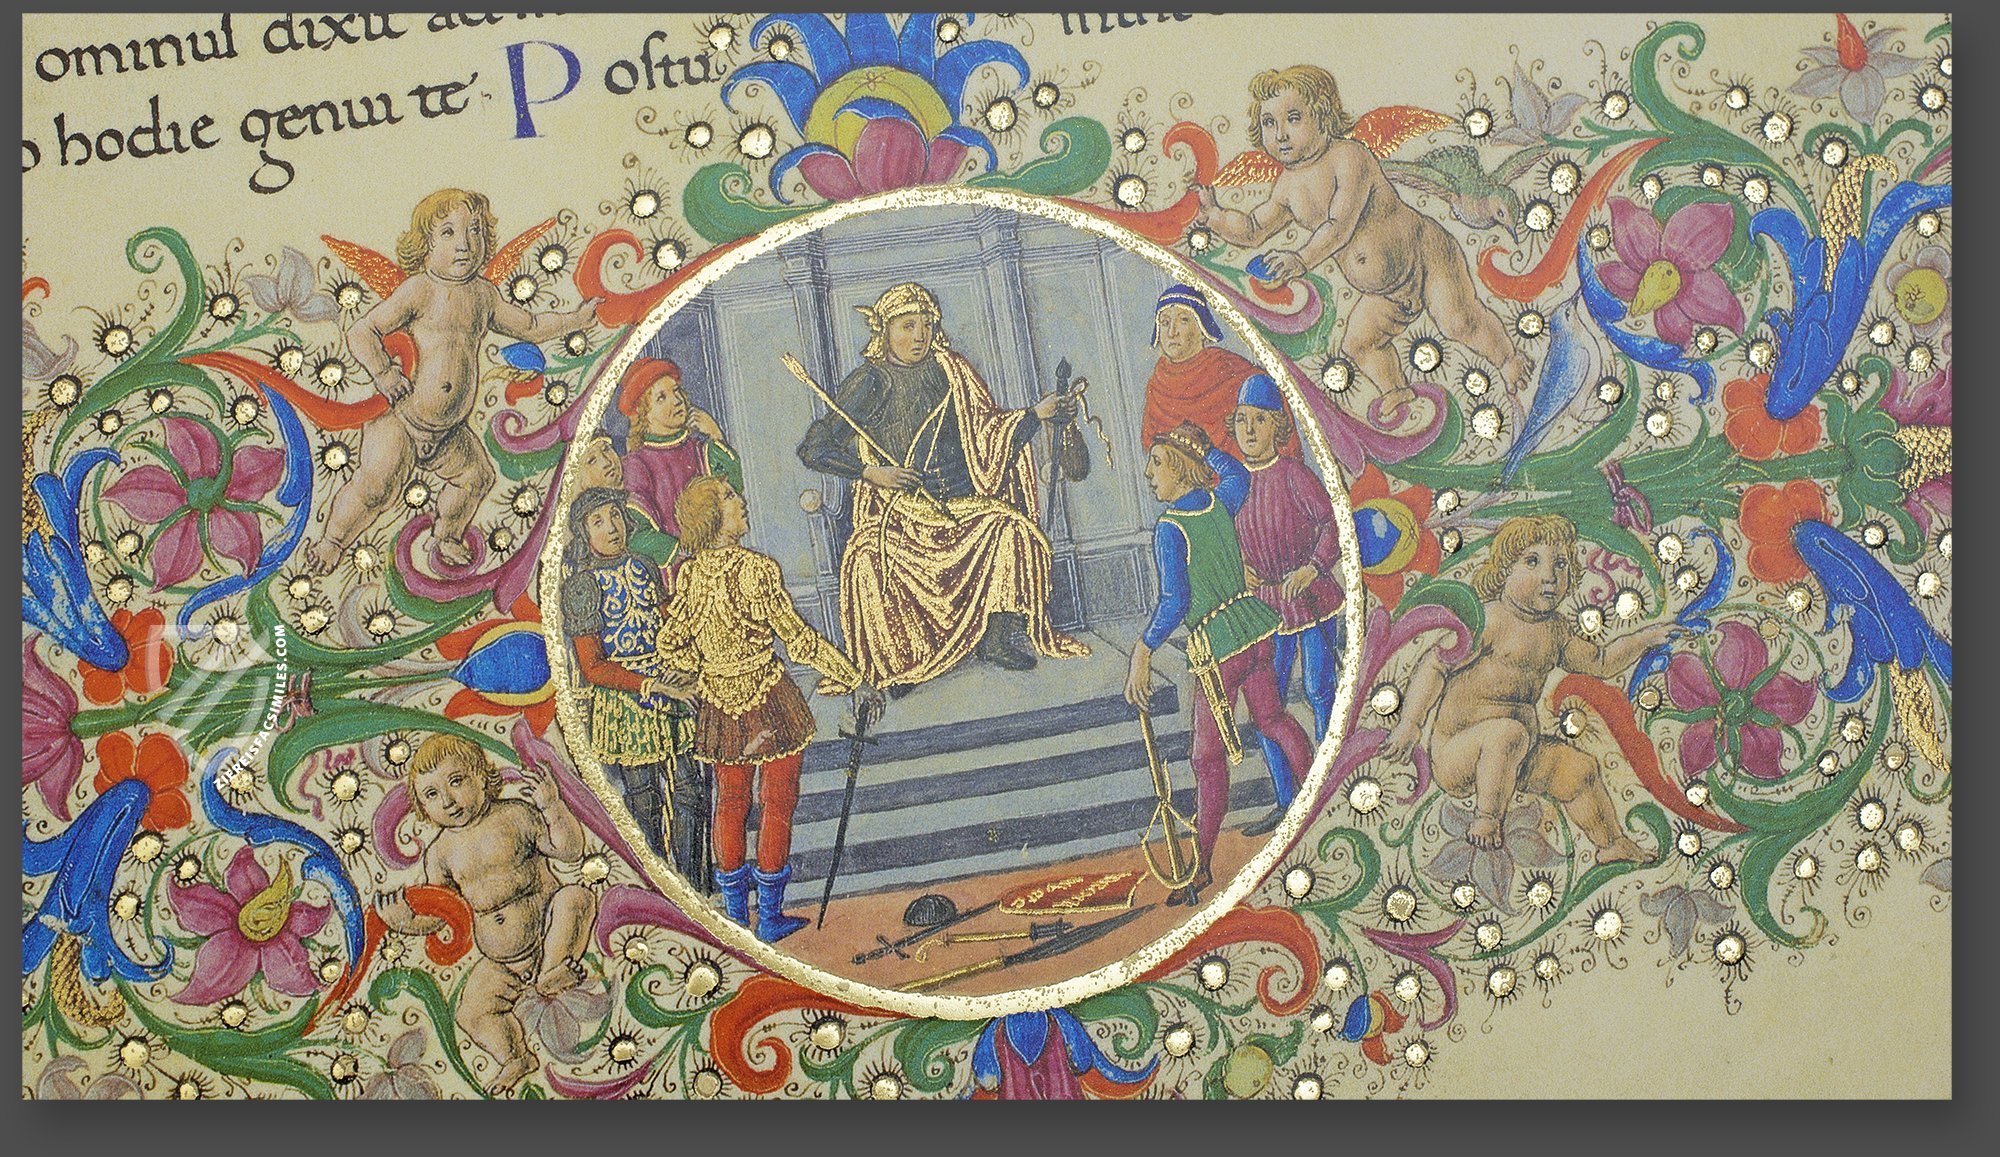 ominus dixit ad m
hodie genui te P ostu
ZIERERFACSIMILES.COM